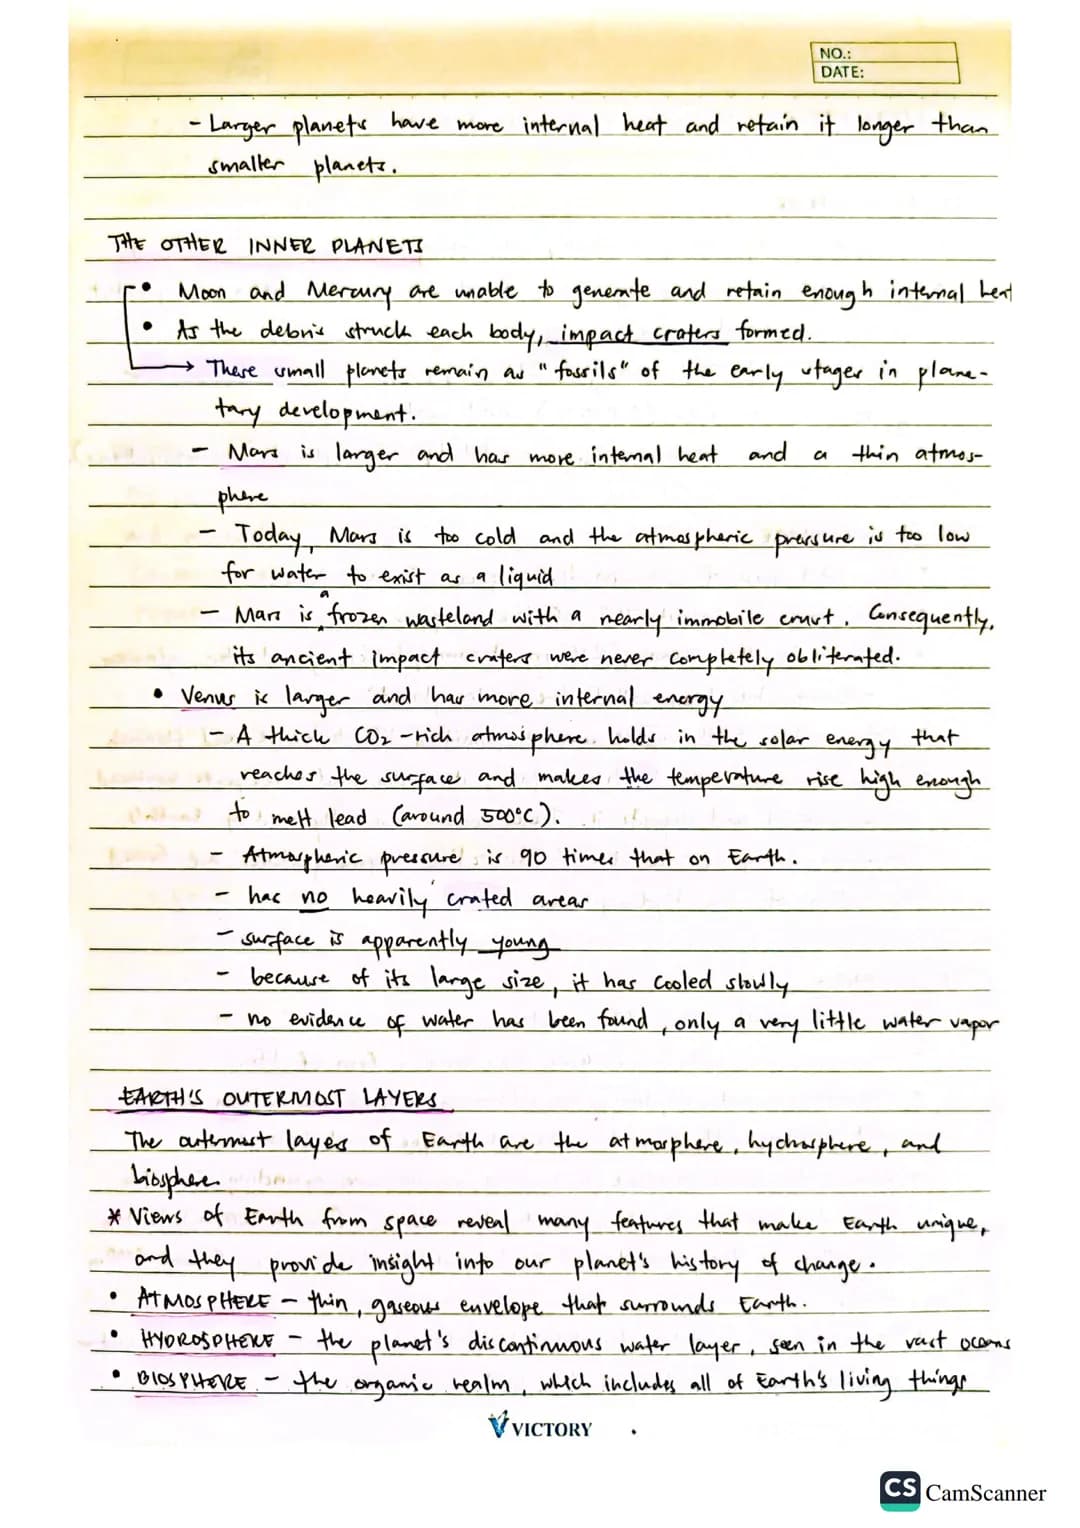 NO.:
DATE:
- Larger planets have more internal heat and retain it longer than
smaller planets.
THE OTHER INNER PLANETS
• Moon and Mercury are unable to generate and retain enough internal heat
• As the debris struck each body, impact craters formed.
→ These small planets remain as "fossils" of the early stages in plane-
tary development.
- Mars is larger and has more internal heat and a thin atmos-
phere
- Today, Mars is too cold and the atmospheric pressure is too low
for water to exist as a liquid
- Mars is a frozen wasteland with a nearly immobile crust. Consequently,
its ancient impact craters were never completely obliterated.
• Venus is larger and has more internal energy
- A thick CO2-rich atmosphere holds in the solar energy that
reaches the surface and makes the temperature rise high enough
to melt lead (around 500°C).
- Atmospheric pressure is 90 times that on Earth.
- has no heavily crated areas
- surface is apparently young
- because of its large size, it has cooled slowly
- no evidence of water has been found, only a very little water vapor
EARTH'S OUTERMOST LAYERS
The outermost layes of Earth are the atmosphere, hydrosphere, and
biosphere
* Views of Earth from space reveal many features that make Earth unique,
and they provide insight into our planet's history of change.
• ATMOSPHERE - thin, gaseous envelope that surrounds Earth.
• HYDROSPHERE - the planet's discontinuous water layer, seen in the vast oceans
• BIOSPHERE - the organic realm, which includes all of Earth's living things
VICTORY
CS CamScanner